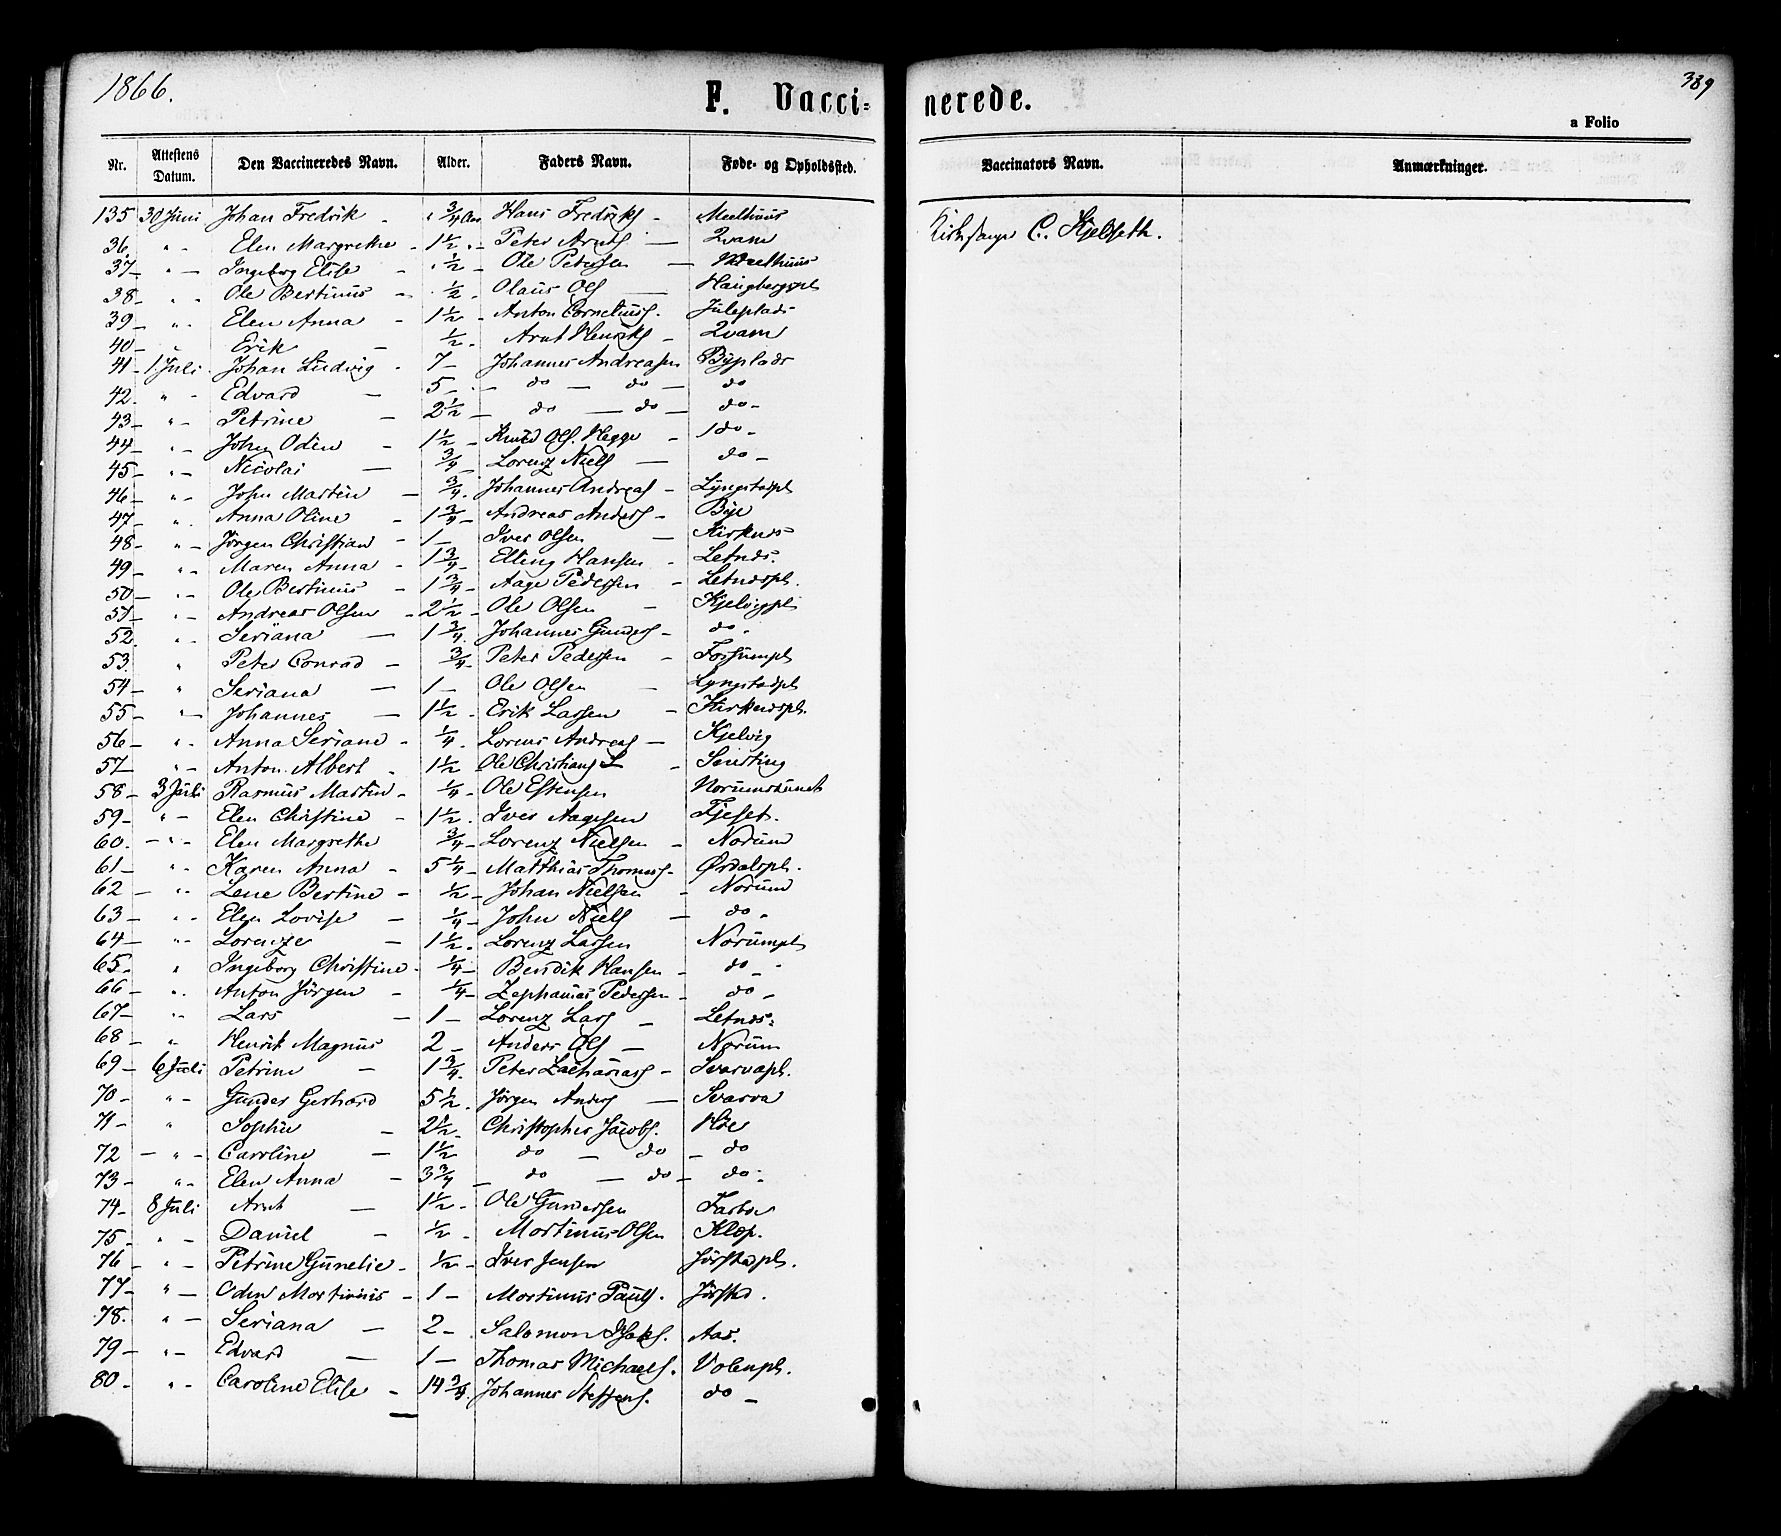 1866.
389
F. Vaccinerede.
a Folio
Nr. Attestens Datum. Den Vaccineredes Navn. Alder. Faders Navn. Føde- og Opholdssted. Vaccinators Navn. Anmærkninger.
135 30 Juni Johan Fredrik - " 3/4 Aar Hans Fredriks - Meelhuus Kirkesanger C. Hjelseth.
36. " - Elen Margrethe - 1 1/2 " - Peter Arnts — Qvam
37 - " - Ingeborg Elise - " 1/2 - Ole Petersen — Meelhuus
38 - " - Ole Bertinus - 1/2 Olaus Ols — Haugbergspl
39 - " - Elen Anna - 1 1/2 - Anton Cornelius. Juleplads
40 - " Erik - 1/2 - Arnt Henriks - Qvam
41 - 1 Juli Johan Ludvig - 7 - Johannes Andreasen Byplads
42. " - Edvard - 5 - do — do — do
43 - " - Petrine - 2 1/2 - do — do — do -
44 - " - John Odin - 1 1/2 - Knud Ols. Hegge - do -
45 - " - Nicolai — 3/4 - Lorenz Niels — do -
46 - " - John Martin — 3/4. Johannes Andreas - Lyngstadpl
47 - " Anna Oline - 1 3/4 - Andreas Anders - Bye
48 - " - Jörgen Christian - 1 - Iver Olsen — Kirknes
49 - " - Maren Anna - 1 3/4 - Elling Hansen - Letnes.
50 - " - Ole Bertinus - 1 3/4 - Aage Pedersen - Letnespl.
51 - " - Andreas Olsen - 2 1/2 - Ole Olsen - Kjelvigpl
52. " - Seriana — 1 3/4. Johannes Gunders - do -
53. " Peter Conrad - 3/4 - Peter Pedersen - Fossumpl
54 - " Seriana — 1 - Ole Olsen — Lyngstadpl
55 - " - Johannes — 1 1/2 - Erik Larsen - Kirknespl.
56 - " - Anna Seriane - 1/4 - Lorens Andreas — Kjelvig
57 - " - Anton Albert - 1 1/2 - Ole Christians - 
58 - 3 Juli Rasmus Martin - 1/4 - Ole Estensen
59 - " - Elen Christine - 1 1/2. Iver Aagesen Tjeset.
60. - " - Elen Margrethe 3/4 - Lorenz Nielsen - Norum
61 - " - Karen Anna - 5 1/4 - Matthias Thomas - Ørdalspl.
62 - " - Lene Bertine - 1/2 - Johan Nielsen - Norum
63 - " - Elen Lovise — 1/4 - John Niels — do -
64 - " - Lorenze — 1 1/2. Lorenz Larsen Norumpl
65. - " Ingeborg Christine - 1/4 - Bendik Hansen - do -
66 - " - Anton Jörgen - 1/4 - Zephanias Pedersen - do -
67 - " - Lars — 1 - Lorenz Lars — Letnes
68 - " Henrik Magnus 2 - Anders Ols — Norum
69 - 6 Juli Petrine - 1 3/4. Peter Zacharias - Svarvapl.
70 - " - Gunder Gerhard 5 1/2. Jörgen Anders — Svarva
71 - " Sophie - 2 1/2 - Christopher Jacobs. Höe
72 - " - Caroline — 1 1/2 do — do - do
73 - " - Elen Anna - 3 3/4 - do — do - do -
74 - 8 Juli Arnt — 1 1/2 - Ole Gundersen Tarbor
75 - " - Daniel - 1/2 - Mortinus Olsen Kløp.
76 - " - Petrine Gunelie - 1/2 - Iver Jensen Jörstadpl.
77 - " - Odin Mortinus - 1 - Mortinus Pauls. Jörstad.
78. " - Seriana - 2 - Salomon Isaks. Aas.
79 - " - Edvard — 1 - Thomas Michaels. Volenpl.
80 - " - Caroline Elise - 14 3/4. Johannes Steffens. do -